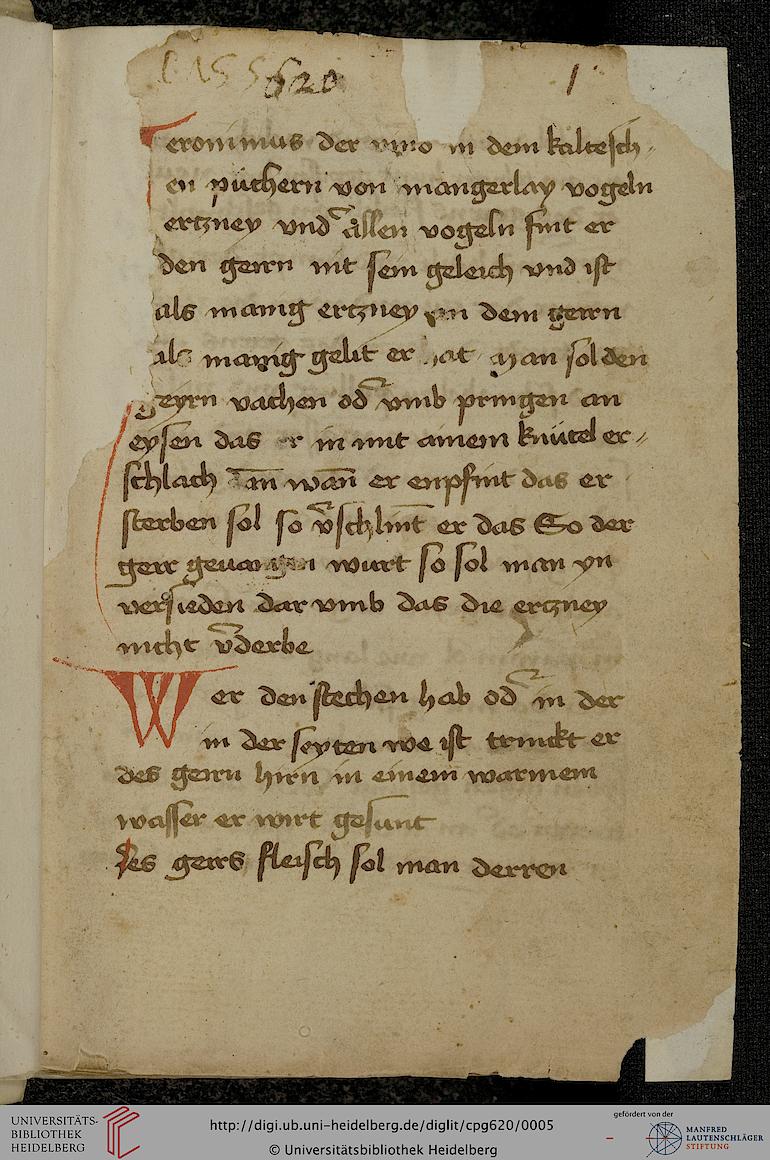 620
1
eronimus der in dem kaltesch-
en puchern von mangerlay vogeln
ertzney vnd allen vogeln fint er
den geirn nit sein geleich vnd ist
als manig ertzney an dem geirn
als manig gelit er hat man sol den
geyrn vachen od vmb pringen an
eysen das er in mit ainem knütel er-
schlach wan er enpfint das er
sterben sol so vschlint er das So der
geir geuangen wirt so sol man yn
versieden dar vmb das die ertzney
nicht vderbe
Wer den stechen hab od in der
in der seyten we ist trinckt er
des geirn hirn in einem warmem
wasser er wirt gesunt
Des geirs fleisch sol man derren
UNIVERSITÄTS-
BIBLIOTHEK
HEIDELBERG
http://digi.ub.uni-heidelberg.de/diglit/cpg620/0005
© Universitätsbibliothek Heidelberg
gefördert von der
MANFRED
LAUTENSCHLÄGER
STIFTUNG